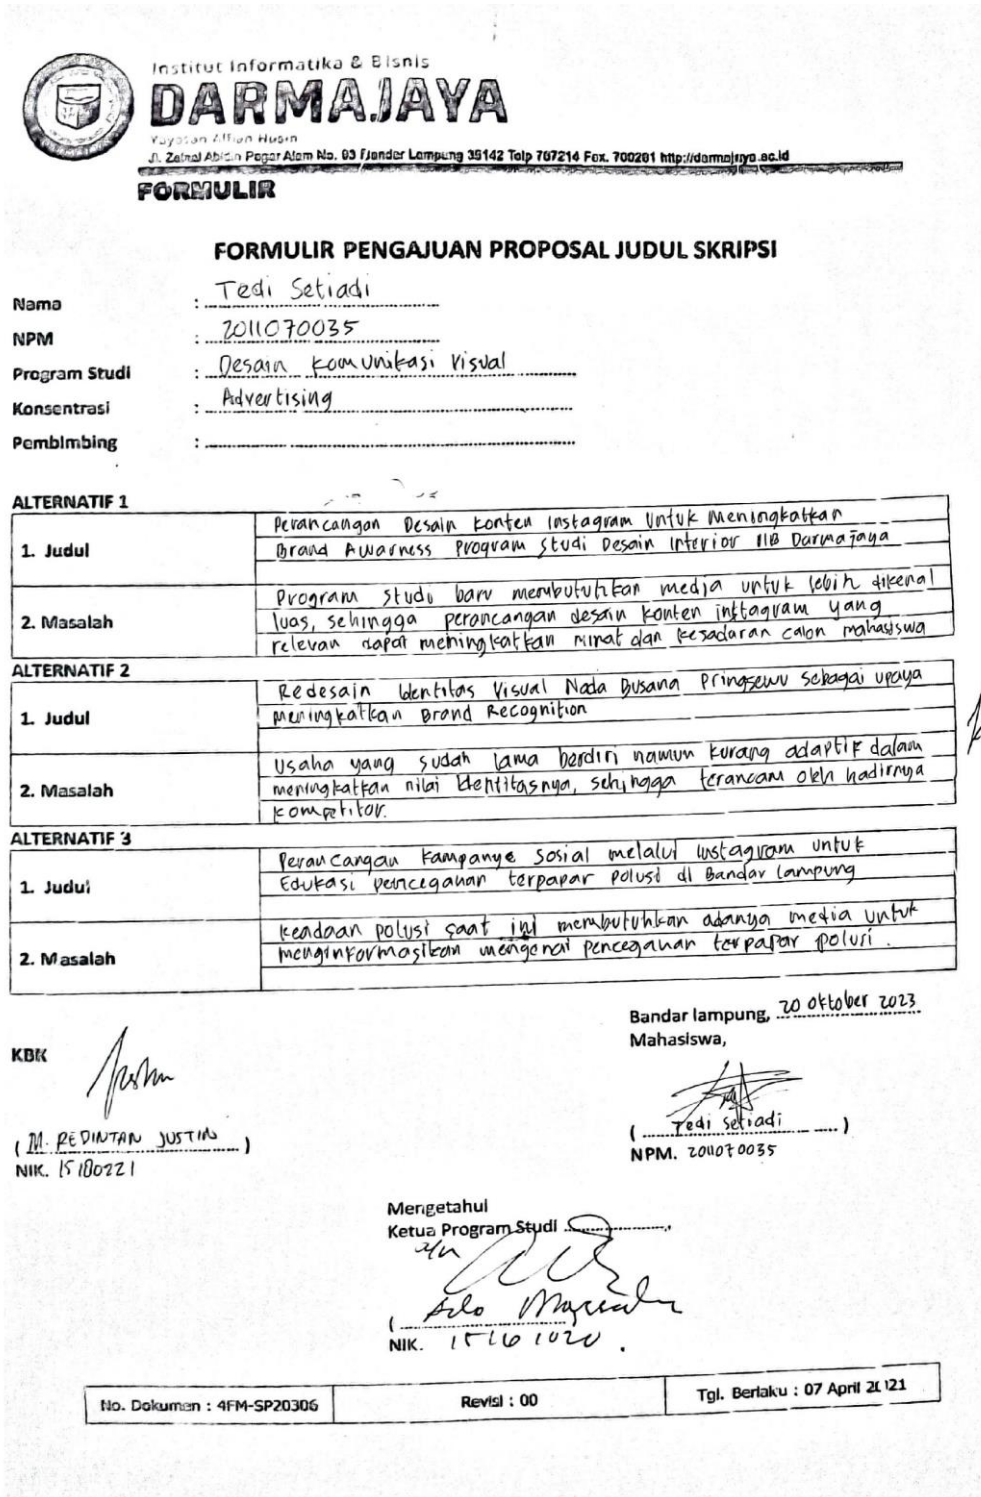 Institut Informatika & Bisnis
DARMAJAYA
Yayasan Alfian Husin
Jl. Zainal Abidin Pagar Alam No. 93 Bandar Lampung 35142 Telp 787214 Fax. 700261 http://darmajaya.ac.id
FORMULIR
FORMULIR PENGAJUAN PROPOSAL JUDUL SKRIPSI
Nama : Tedi Setiadi
NPM : 2011070035
Program Studi : Desain Komunikasi Visual
Konsentrasi : Advertising
Pembimbing :
ALTERNATIF 1
1. Judul
Perancangan Desain Konten Instagram Untuk Meningkatkan
Brand Awarness Program Studi Desain Interior IIB Darmajaya
2. Masalah
Program studi baru membutuhkan media untuk lebih dikenal
luas, sehingga perancangan desain konten instagram yang
relevan dapat meningkatkan minat dan kesadaran calon mahasiswa
ALTERNATIF 2
1. Judul
Redesain Identitas Visual Nada Busana Pringsewu Sebagai upaya
Meningkatkan Brand Recognition
2. Masalah
Usaha yang sudah lama berdiri namun kurang adaptif dalam
meningkatkan nilai identitasnya, sehingga terancam oleh hadirnya
kompetitor.
ALTERNATIF 3
1. Judul
Perancangan Kampanye Sosial melalui Instagram untuk
Edukasi pencegahan terpapar polusi di Bandar Lampung
2. Masalah
Keadaan polusi saat ini membutuhkan adanya media untuk
menginformasikan mengenai pencegahan terpapar polusi.
Bandar lampung, 20 Oktober 2023
Mahasiswa,
KBK
( M. REDINTAN JUSTIN )
NIK. 15180221
( Tedi Setiadi )
NPM. 2011070035
Mengetahui
Ketua Program Studi
a/n
(
NIK. 15161020.
No. Dokumen : 4FM-SP20306
Revisi : 00
Tgl. Berlaku : 07 April 2021